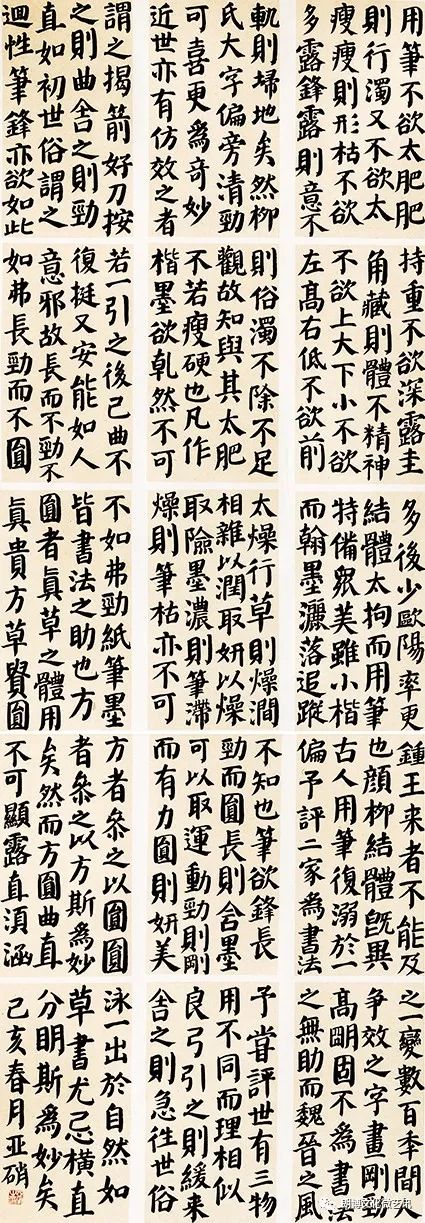 用筆不欲太肥肥
則行濁又不欲太
瘦瘦則形枯不欲
多露鋒露則意不
持重不欲深露圭
角藏則體不精神
不欲上大下小不欲
左高右低不欲前
多後少歐陽率更
結體太拘而用筆
特備眾美雖小楷
而翰墨灑落追蹤
鍾王来者不能及
也顏柳結體既異
古人用筆復溺於一
偏予評二家為書法
之一變數百季間人
争效之字畫剛勁
高明固不為書法
之無助而魏晉之風
軌則掃地矣然柳
氏大字偏旁清勁
可喜更為奇妙
近世亦有仿效之者
則俗濁不除不足
觀故知與其太肥
不若瘦硬也凡作
楷墨欲乾然不可
太燥行草則燥潤
相雜以潤取妍以燥
取險墨濃則筆滯
燥則筆枯亦不可
不知也筆欲鋒長
勁而圓長則含墨
可以取運動勁則剛
而有力圓則妍美
予嘗評世有三物
用不同而理相似
良弓引之則緩来
舍之則急往世俗
謂之揭箭好刀按
之則曲舍之則勁
直如初世俗謂之
迴性筆鋒亦欲如此
若一引之後已曲不
復挺又安能如人
意邪故長而不勁不
如弗長勁而不圓
不如弗勁紙筆墨
皆書法之助也方
圓者真草之體用
真貴方草貴圓
方者參之以圓圓
者參之以方斯為妙
矣然而方圓曲直
不可顯露直須涵
泳一出於自然如
草書尤忌橫直
分明斯為妙矣
己亥春月亞硝